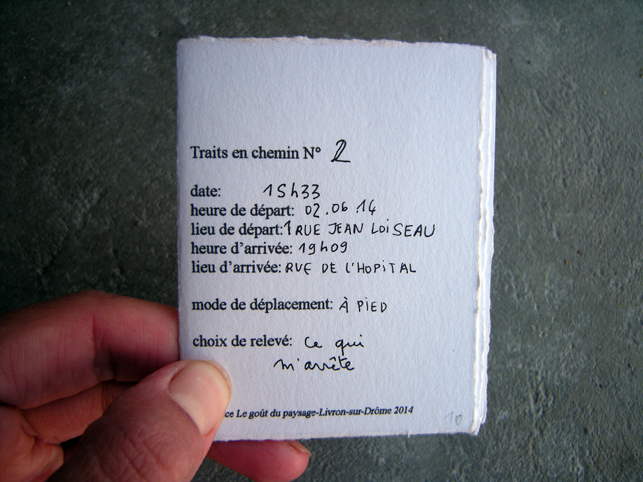 Traits en chemin N° 2
date: 15h33
heure de départ: 02.06 14
lieu de départ: 1 RUE JEAN LOISEAU
heure d'arrivée: 19h09
lieu d'arrivée: RUE DE L'HOPITAL
mode de déplacement: À PIED
choix de relevé: ce qui
m'arrête
Le goût du paysage-Livron-sur-Drôme 2014
10